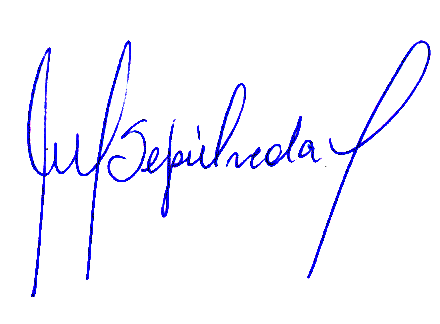 Sepúlveda